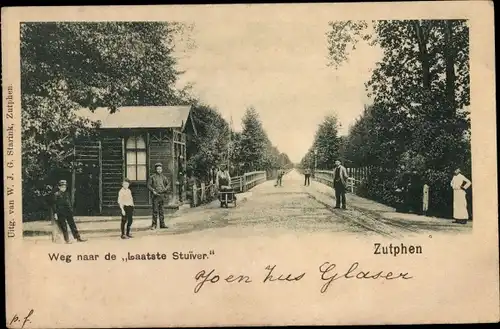 Uitg. van W. J. G. Starink, Zutphen.
Zutphen
Weg naar de „Laatste Stuiver."
Glaser
p. f.